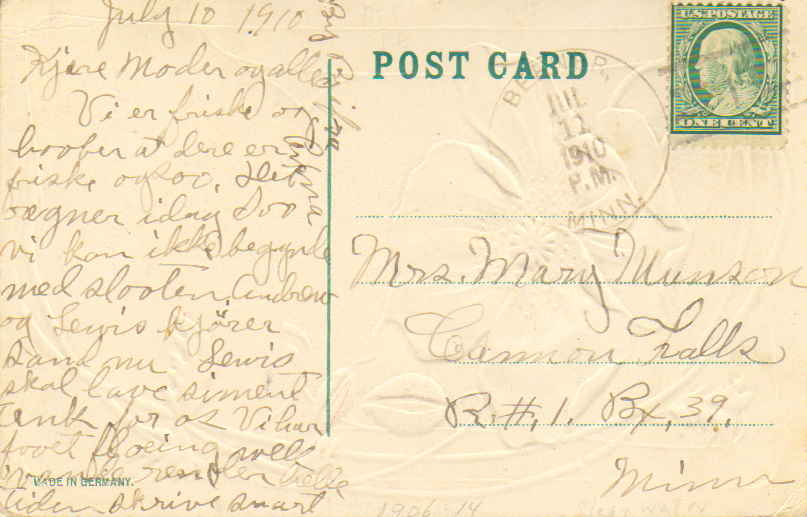 July 10 1910
Kjere Moder og alle
Vi er friske og
hoober at dere er
friske ogsoo. Det
rægner idag soo
vi kan ikke begynde
med slooten. Andrew
og Lewis kjører
sand nu Lewis
skal lave siment
tank for os Vi har
foot floeing well
vandet render hele
tiden skrive snart
POST CARD
U.S. POSTAGE
ONE CENT
JUL
11
1910
P.M.
MINN.
Mrs. Mary Munson
Cannon Falls
R.#.1. Bx, 39.
Minn
MADE IN GERMANY.
1906-14